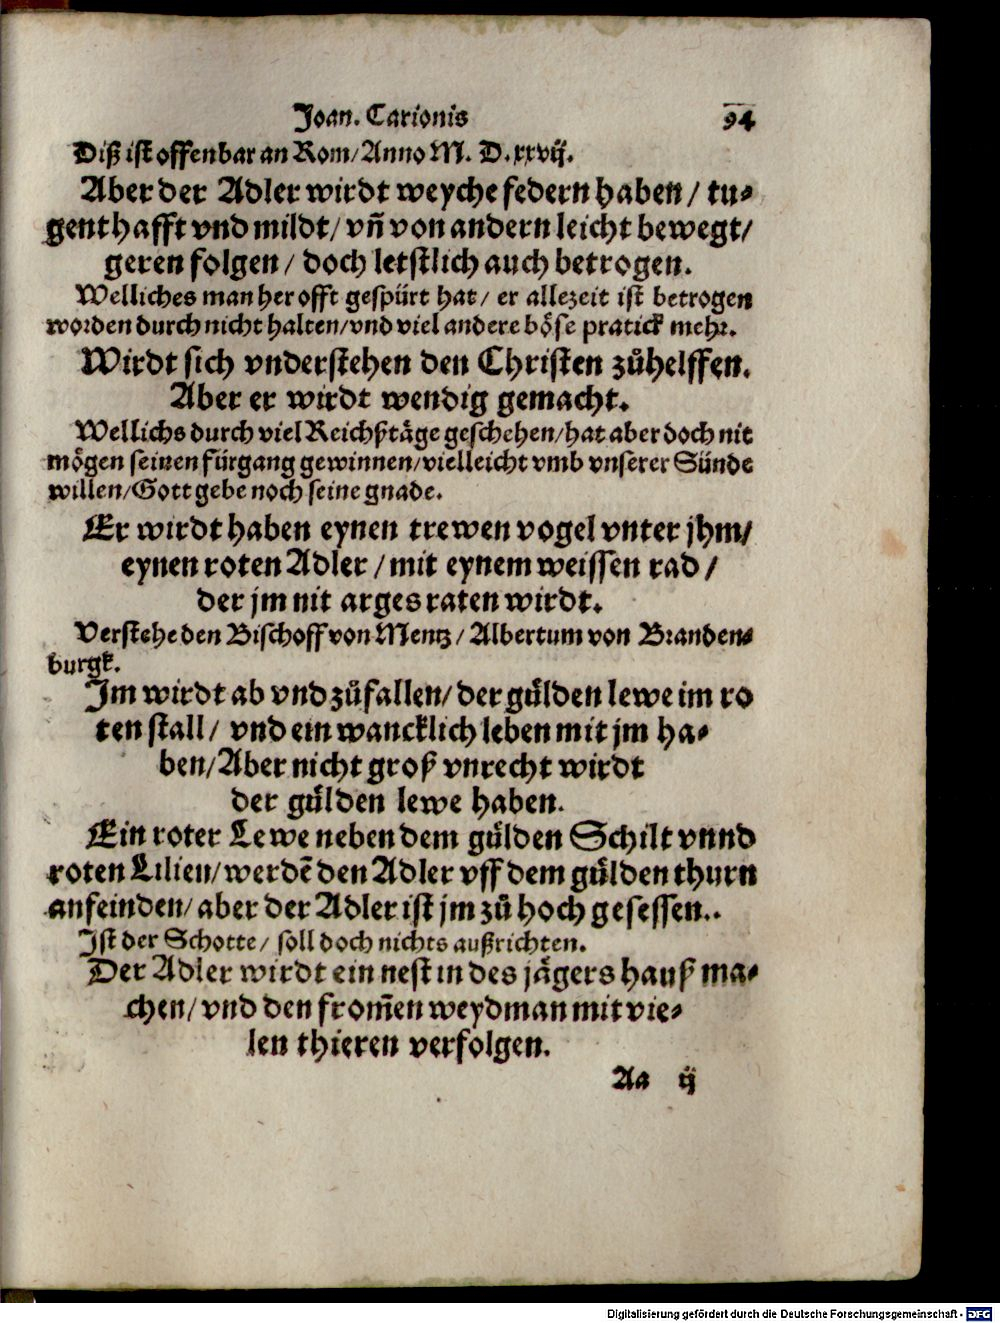 Joan. Carionis 94
Diß ist offenbar an Rom/Anno M. D.xxvij.
Aber der Adler wirdt weyche federn haben / tu⸗
genthafft vnd mildt/ vn̄ von andern leicht bewegt/
geren folgen / doch letstlich auch betrogen.
Welliches man her offt gespürt hat/ er allezeit ist betrogen
worden durch nicht halten/vnd viel andere böse pratick mehr.
Wirdt sich vnderstehen den Christen zůhelffen.
Aber er wirdt wendig gemacht.
Wellichs durch viel Reichßtäge geschehen/hat aber doch nit
mögen seinen fürgang gewinnen/vielleicht vmb vnserer Sünde
willen/Gott gebe noch seine gnade.
Er wirdt haben eynen trewen vogel vnter jhm/
eynen roten Adler / mit eynem weissen rad /
der jm nit arges raten wirdt.
Verstehe den Bischoff von Mentz / Albertum von Branden⸗
burgk.
Jm wirdt ab vnd zůfallen/ der gülden lewe im ro
ten stall / vnd ein wancklich leben mit jm ha⸗
ben/Aber nicht groß vnrecht wirdt
der gülden lewe haben.
Ein roter Lewe neben dem gülden Schilt vnnd
roten Lilien/werdē den Adler vff dem gülden thurn
anfeinden/ aber der Adler ist jm zů hoch gesessen..
Jst der Schotte / soll doch nichts außrichten.
Der Adler wirdt ein nest in des jägers hauß ma⸗
chen/ vnd den from̄en weydman mit vie⸗
len thieren verfolgen.
Aa ij
Digitalisierung gefördert durch die Deutsche Forschungsgemeinschaft - DFG